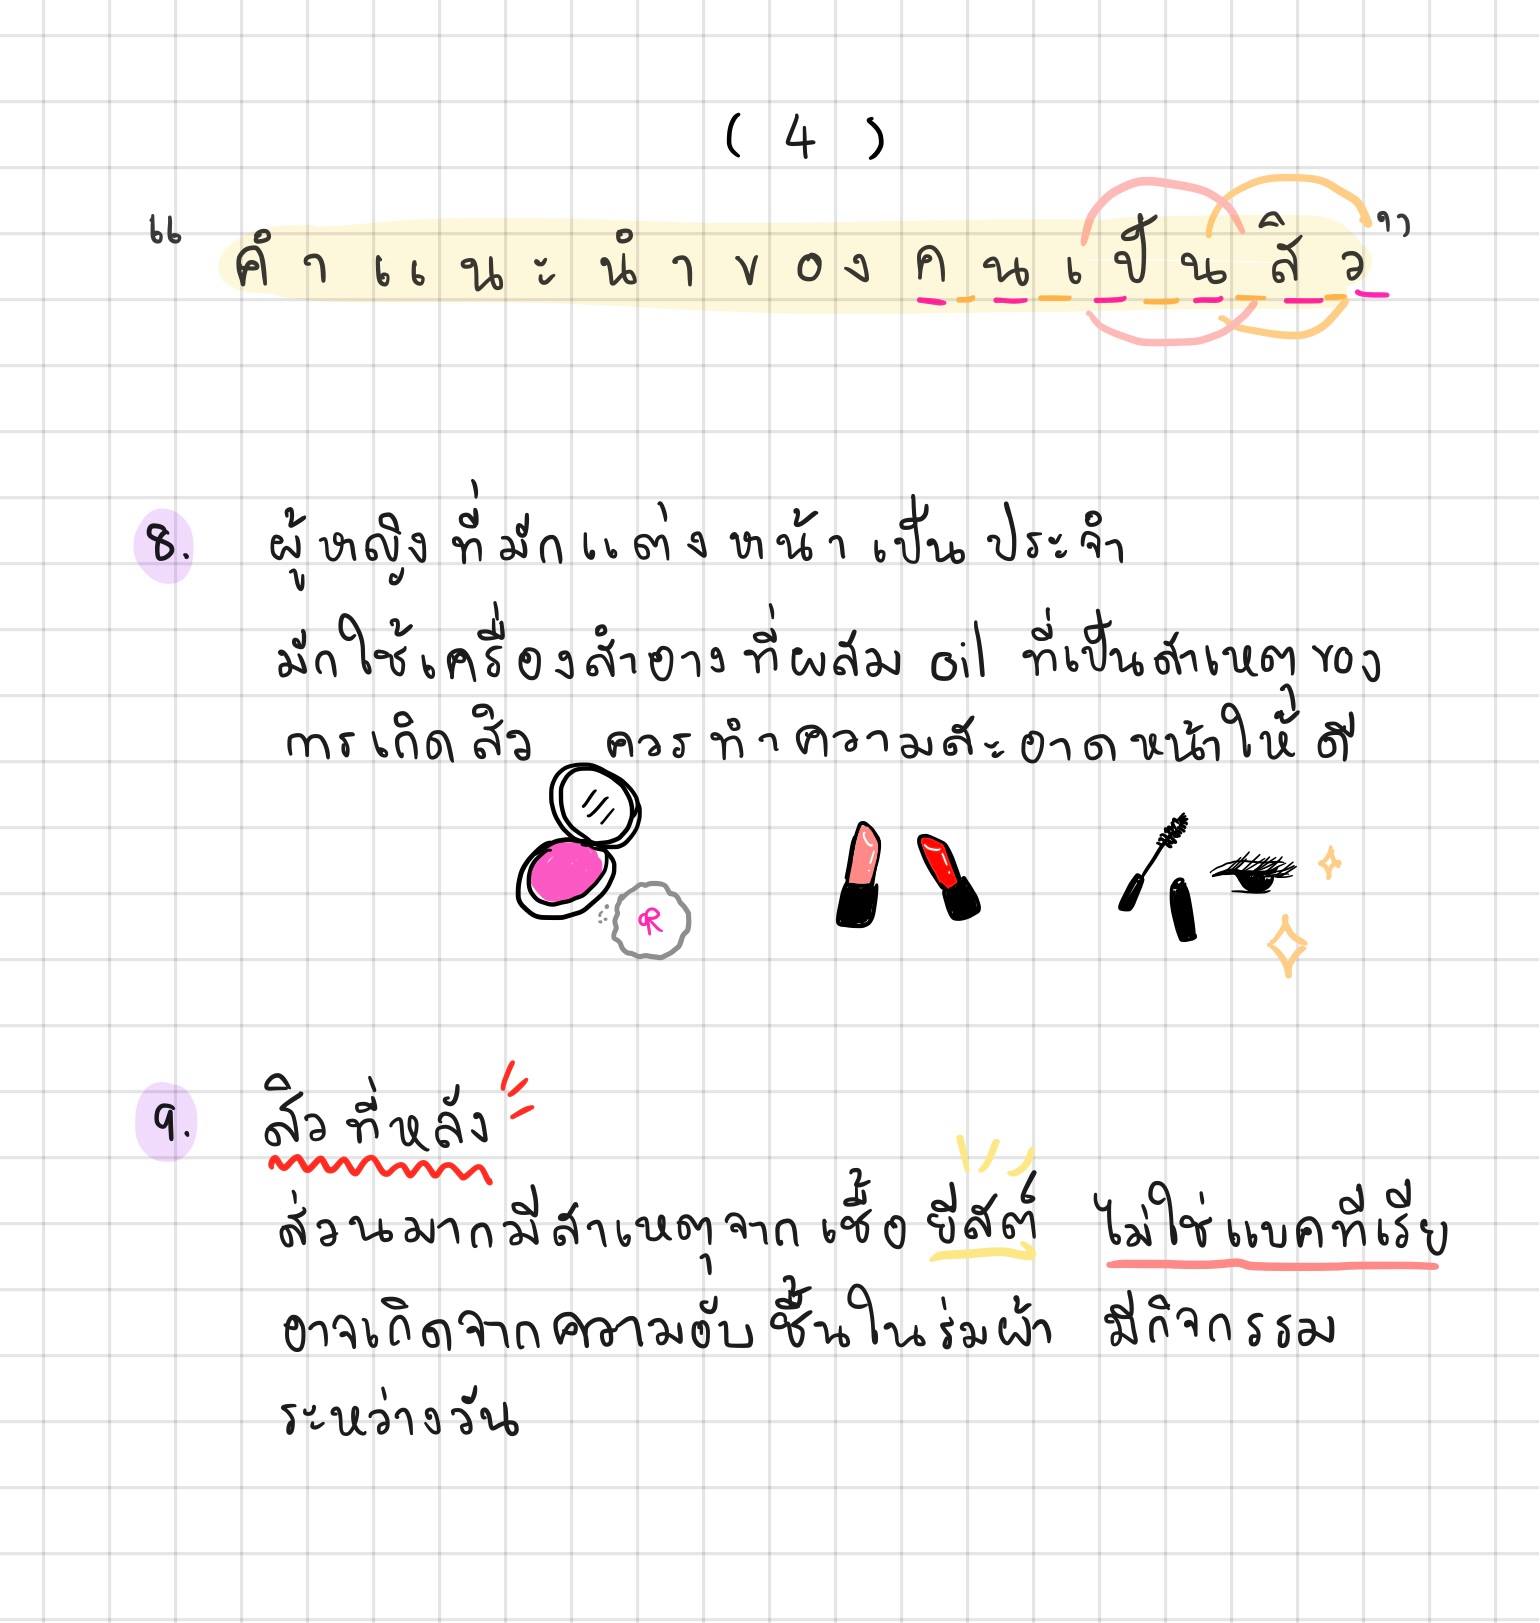 ( 4 )
“ คำแนะนำของคนเป็นสิว ”
8. ผู้หญิงที่มักแต่งหน้าเป็นประจำ
มักใช้เครื่องสำอางที่ผสม oil ที่เป็นสาเหตุของ
การเกิดสิว ควรทำความสะอาดหน้าให้ดี
R
9. สิวที่หลัง
ส่วนมากมีสาเหตุจากเชื้อยีสต์ ไม่ใช่แบคทีเรีย
อาจเกิดจากความอับชื้นในร่มผ้า มีกิจกรรม
ระหว่างวัน